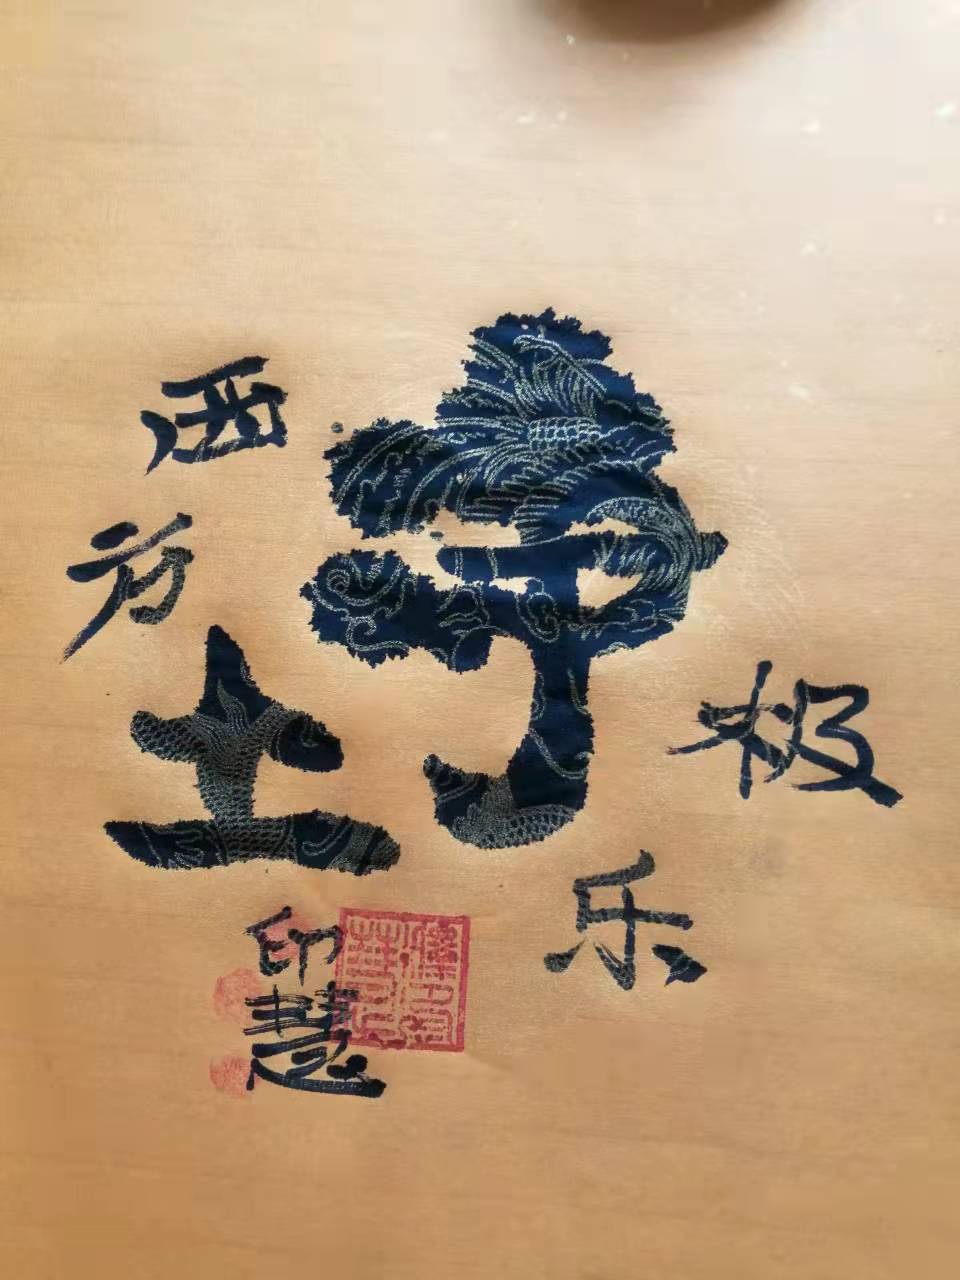 西方
极乐
净土
印慧